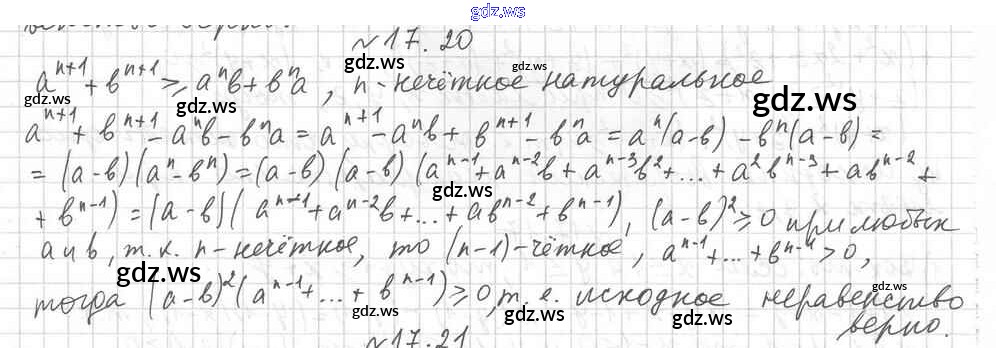 gdz.ws
№17.20
a^{n+1} + b^{n+1} ≥ a^n b + b^n a, n - нечётное натуральное
a^{n+1} + b^{n+1} - a^n b - b^n a = a^{n+1} - a^n b + b^{n+1} - b^n a = a^n (a-b) - b^n (a-b) =
= (a-b)(a^n - b^n) = (a-b)(a-b)(a^{n-1} + a^{n-2}b + a^{n-3}b^2 + ... + a^2 b^{n-3} + ab^{n-2} +
+ b^{n-1}) = (a-b)(a^{n-1} + a^{n-2}b + ... + ab^{n-2} + b^{n-1}), (a-b)^2 ≥ 0 при любых
a и b, т.к. n - нечётное, то (n-1) - чётное, a^{n-1} + ... + b^{n-1} > 0,
тогда (a-b)^2 (a^{n-1} + ... + b^{n-1}) ≥ 0, т.е. исходное неравенство
верно.
№17.21
gdz.ws
gdz.ws
gdz.ws
gdz.ws
gdz.ws
gdz.ws
gdz.ws
gdz.ws
gdz.ws
gdz.ws
gdz.ws
gdz.ws